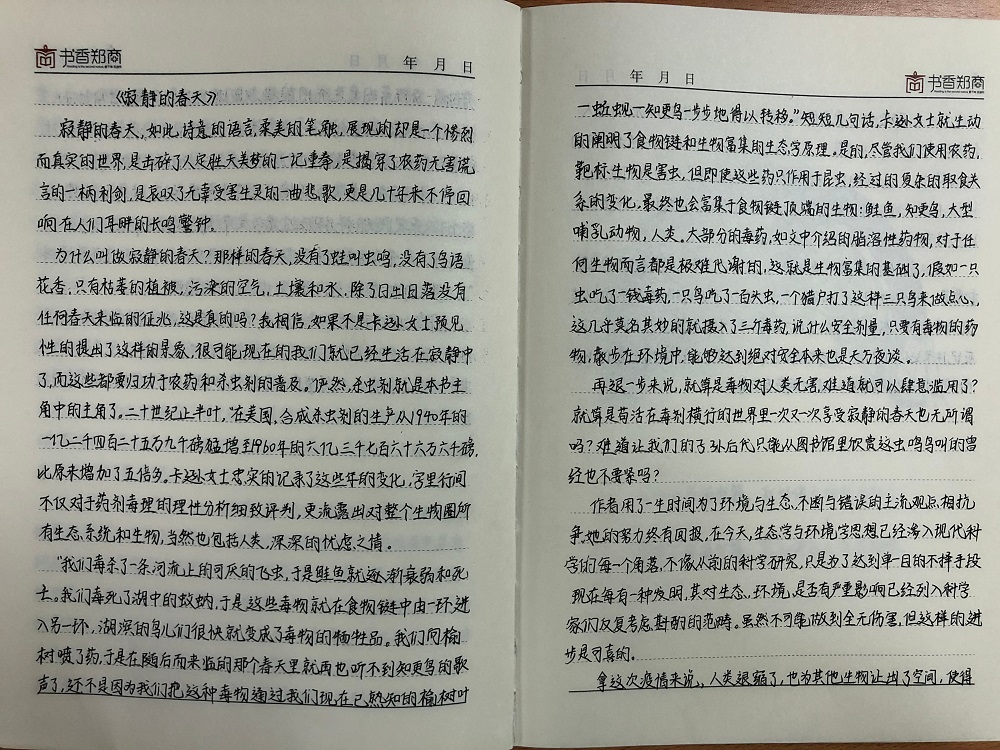 书香郑商
年 月 日
《寂静的春天》
寂静的春天，如此诗意的语言，柔美的笔触，展现的却是一个惨烈
而真实的世界，是击碎了人定胜天美梦的一记重拳，是揭穿了农药无害谎
言的一柄利剑，是哀叹了无辜受害生灵的一曲悲歌，更是几十年来不停回
响在人们耳畔的长鸣警钟。
为什么叫做寂静的春天？那样的春天，没有了蛙叫虫鸣，没有了鸟语
花香，只有枯萎的植被，污染的空气，土壤和水，除了日出日落没有
任何春天来临的征兆，这是真的吗？我相信，如果不是卡逊女士预见
性的提出了这样的景象，很可能现在的我们就已经生活在寂静中
了，而这些都要归功于农药和杀虫剂的普及。俨然，杀虫剂就是本书主
角中的主角了。二十世纪上半叶，“在美国，合成杀虫剂的生产从1940年的
一亿二千四百二十五万九千磅猛增至1960年的六亿三千七百六十六万六千磅，
比原来增加了五倍多。卡逊女士忠实的记录了这些年的变化，字里行间
不仅对于药剂毒理的理性分析细致评判，更流露出对整个生物圈所
有生态系统和生物，当然也包括人类，深深的忧虑之情。
“我们毒杀了一条河流上的可厌的飞虫，于是鲑鱼就逐渐衰弱和死
去。我们毒死了湖中的蚊蚋，于是这些毒物就在食物链中由一环进
入另一环，湖滨的鸟儿们很快就变成了毒物的牺牲品。我们向榆
树喷了药，于是在随后而来临的那个春天里就再也听不到知更鸟的歌
声了，这不是因为我们把这种毒物通过我们现在已熟知的榆树叶
年 月 日
书香郑商
—蚯蚓—知更鸟一步步地得以转移。”短短几句话，卡逊女士就生动
的阐明了食物链和生物富集的生态学原理。是的，尽管我们使用农药，
靶标生物是害虫，但即使这些药只作用于昆虫，经过的复杂的取食关
系的变化，最终也会富集于食物链顶端的生物：鲑鱼，知更鸟，大型
哺乳动物，人类。大部分的毒药，如文中介绍的脂溶性药物，对于任
何生物而言都是极难代谢的，这就是生物富集的基础了，假如一只
虫吃了一钱毒药，一只鸟吃了一百头虫，一个猎户打了这样三只鸟来做点心，
这几乎莫名其妙的就摄入了三斤毒药，说什么安全剂量，只要有毒物的药
物，散步在环境中，能够达到绝对安全本来也是天方夜谈。
再退一步来说，就算是毒物对人类无害，难道就可以肆意滥用了？
就算是苟活在毒剂横行的世界里一次又一次享受寂静的春天也无所谓
吗？难道让我们的子孙后代只能从图书馆里欣赏这虫鸣鸟叫的曾
经也不要紧吗？
作者用了一生时间为了环境与生态，不断与错误的主流观点相抗
争，她的努力终有回报，在今天，生态学与环境学思想已经渗入现代科
学的每一个角落，不像从前的科学研究，只是为了达到单一目的不择手段
现在每有一种发明，其对生态、环境，是否有严重影响已经列入科学
家们反复考虑斟酌的范畴。虽然不可能做到全无伤害，但这样的进
步是可喜的。
拿这次疫情来说，人类退缩了，也为其他生物让出了空间，使得